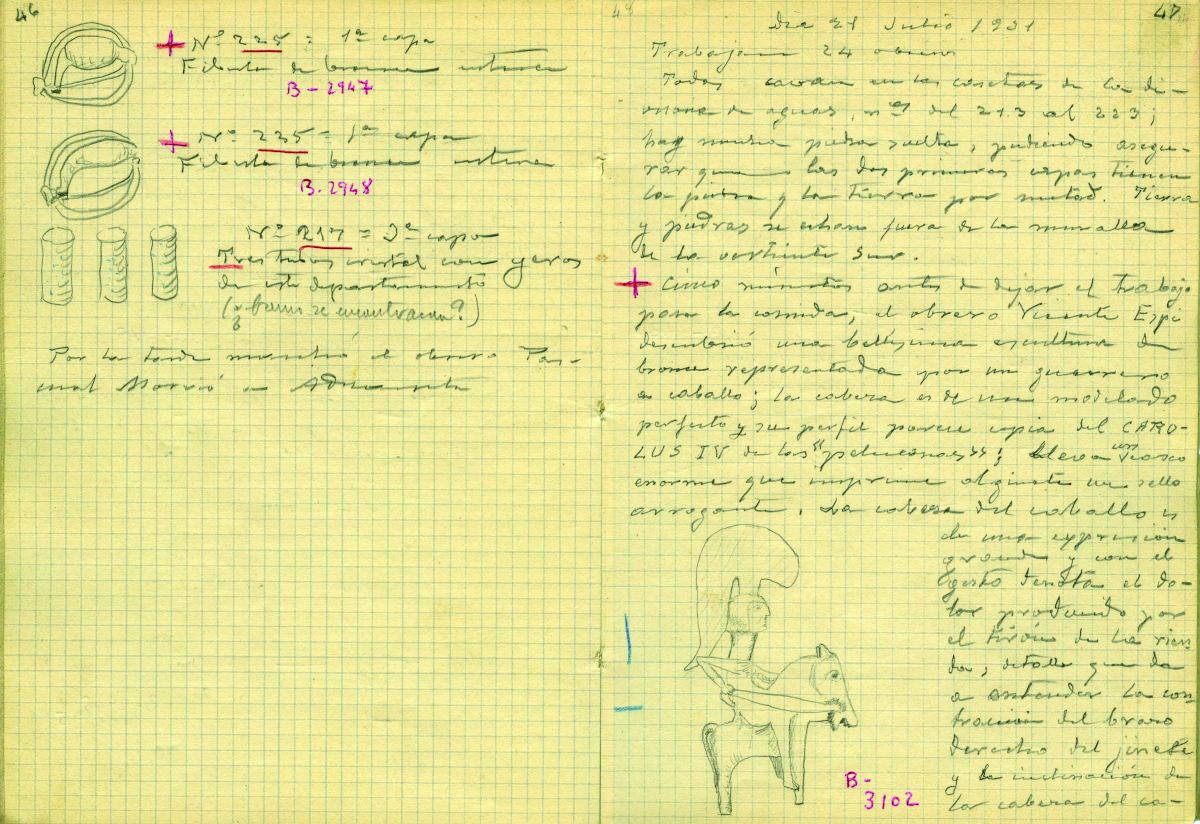 46
Nº 225 = 1ª capa
Fíbula de bronce entera
B-2947
Nº 225 = 1ª capa
Fíbula de bronce entera
B-2948
Nº 217 = 2ª capa
Tres tubos cristal con yeros
de este departamento
(¿ se encontraron?)
Por la tarde marchó el obrero Pas-
cual a
48
47
Dia 21 Julio 1931
Trabajan 24 obreros
Todos cavan en las casetas de la di-
visoria de aguas, nºs del 213 al 223;
hay mucha piedra suelta, pudiendo asegu-
rar que las dos primeras capas tienen
la piedra y la tierra por mitad. Tierra
y piedras se echan fuera de la muralla
de la vertiente Sur.
Cinco minutos antes de dejar el trabajo
para la comida, el obrero Vicente Espí
descubrió una bellísima escultura de
bronce representada por un guerrero
a caballo; la cabeza es de un modelado
perfecto y su perfil parece copia del CARO-
LUS IV de las "peluconas"; lleva un casco
enorme que imprime al ginete un sello
arrogante. La cabeza del caballo es
de una expresión
grande y con el
gesto denota el do-
lor producido por
el tirón de la rien-
da, detalle que da
a entender la con-
tracción del brazo
derecho del jinete
y la inclinación de
la cabeza del ca-
B-
3102